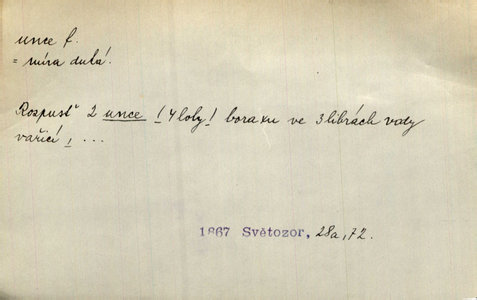 unce f.
= míra dutá.
Rozpusť 2 unce /4 loty/ boraxu ve 3 librách vody
vařící, ...
1867 Světozor, 28a, 72.